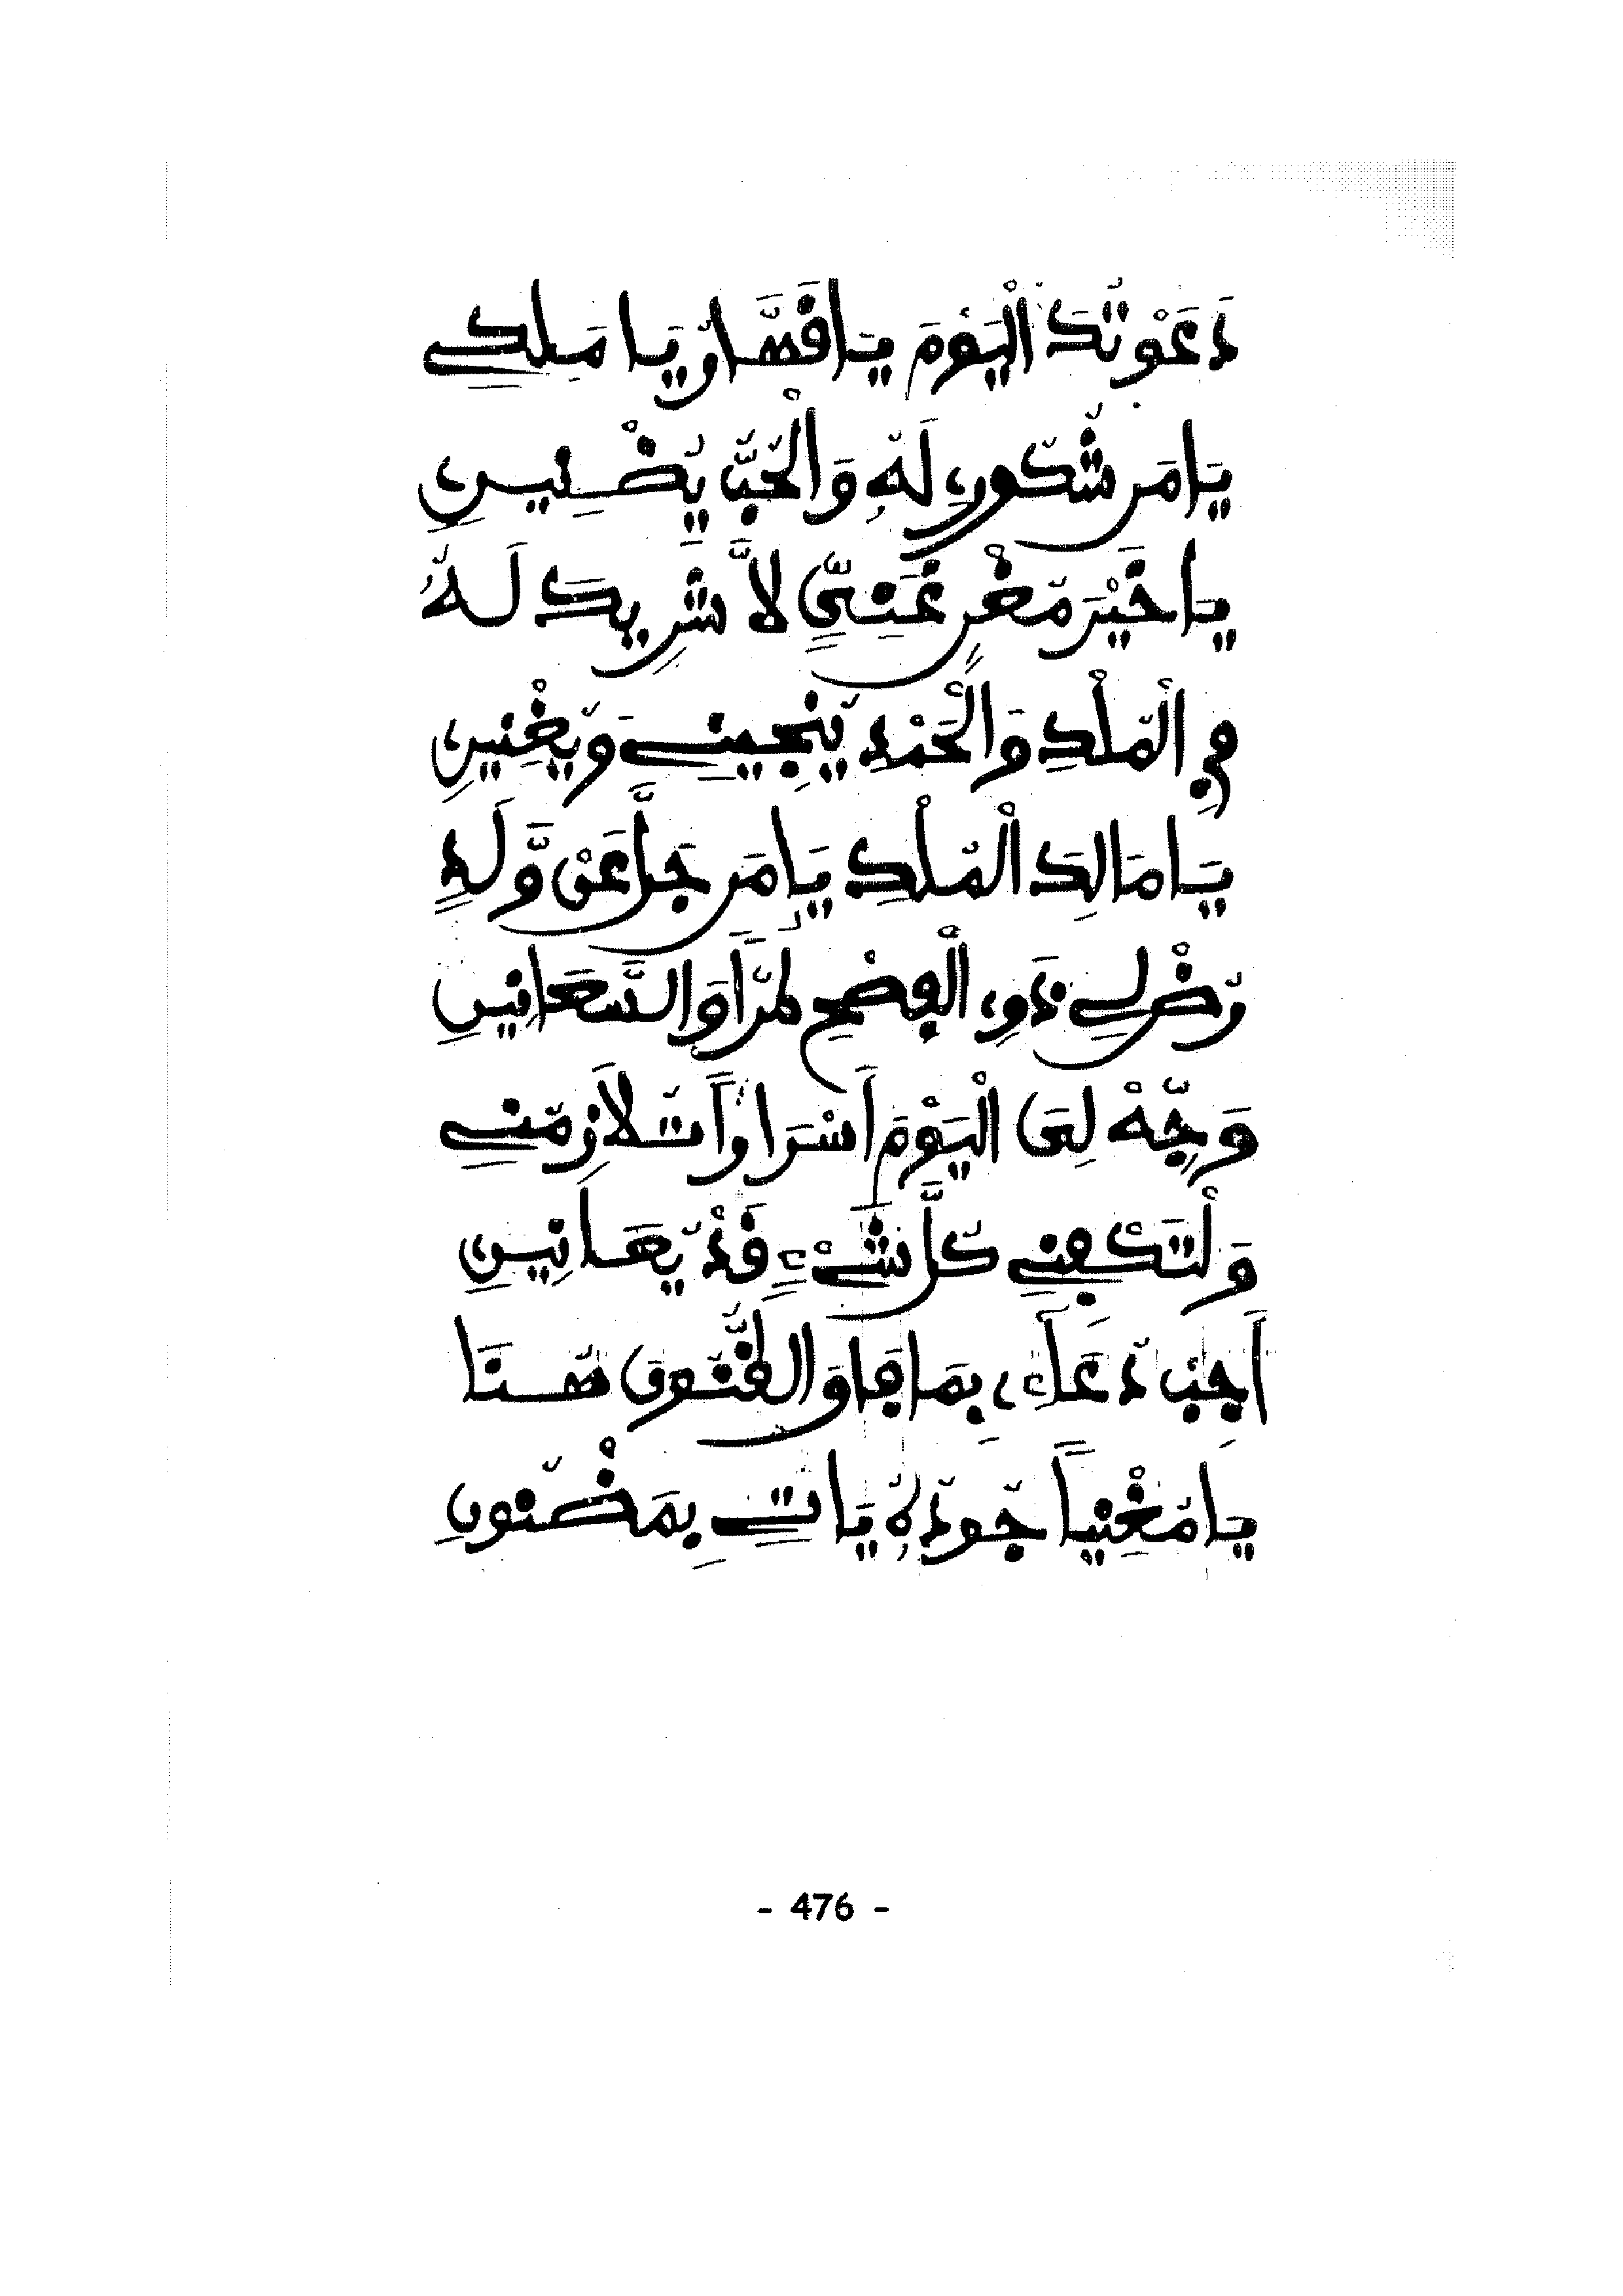 دَعَوْتُكَ الْيَوْمَ يَا قَهَّارُ يَا مَلِكِي
يَا مَن شُكُورِي لَهُ وَالْحُبُّ يُضْنِينِي
يَا خَيْرَ مُغْنٍ غَنِيٍّ لَا شَرِيكَ لَهُ
فِي الْمُلْكِ وَالْحَمْدِ يُنْجِينِي وَيُغْنِينِي
يَا مَالِكَ الْمُلْكِ يَا مَن جَلَّ عَنْ وَّلَدٍ
رُضْ لِي ذَوِي
وَجِّهْ لِىَ الْيَوْمَ أَسْرَارًا تُلَازِمُنِي
وَلْتَكْفِنِي كُلَّ شَيْءٍ قَدْ يُعَانِينِي
أَجِبْ دُعَاءِي بِمَا فَاقَ الظُّنُونَ هُنَا
يَا مُغْنِيًا جُودُهُ يَاتِي بِمَضْنُونِ
- 476 -